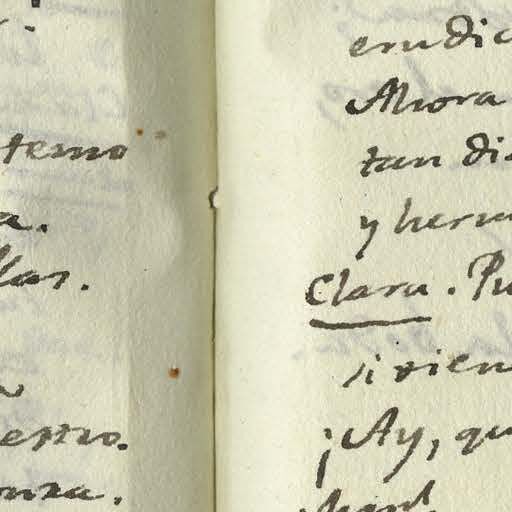 terno
a.
llas.
estro.
onza.
erudic
Ahora
tan di
y herm
Clara. Pu
si vien
¡Ay, qu